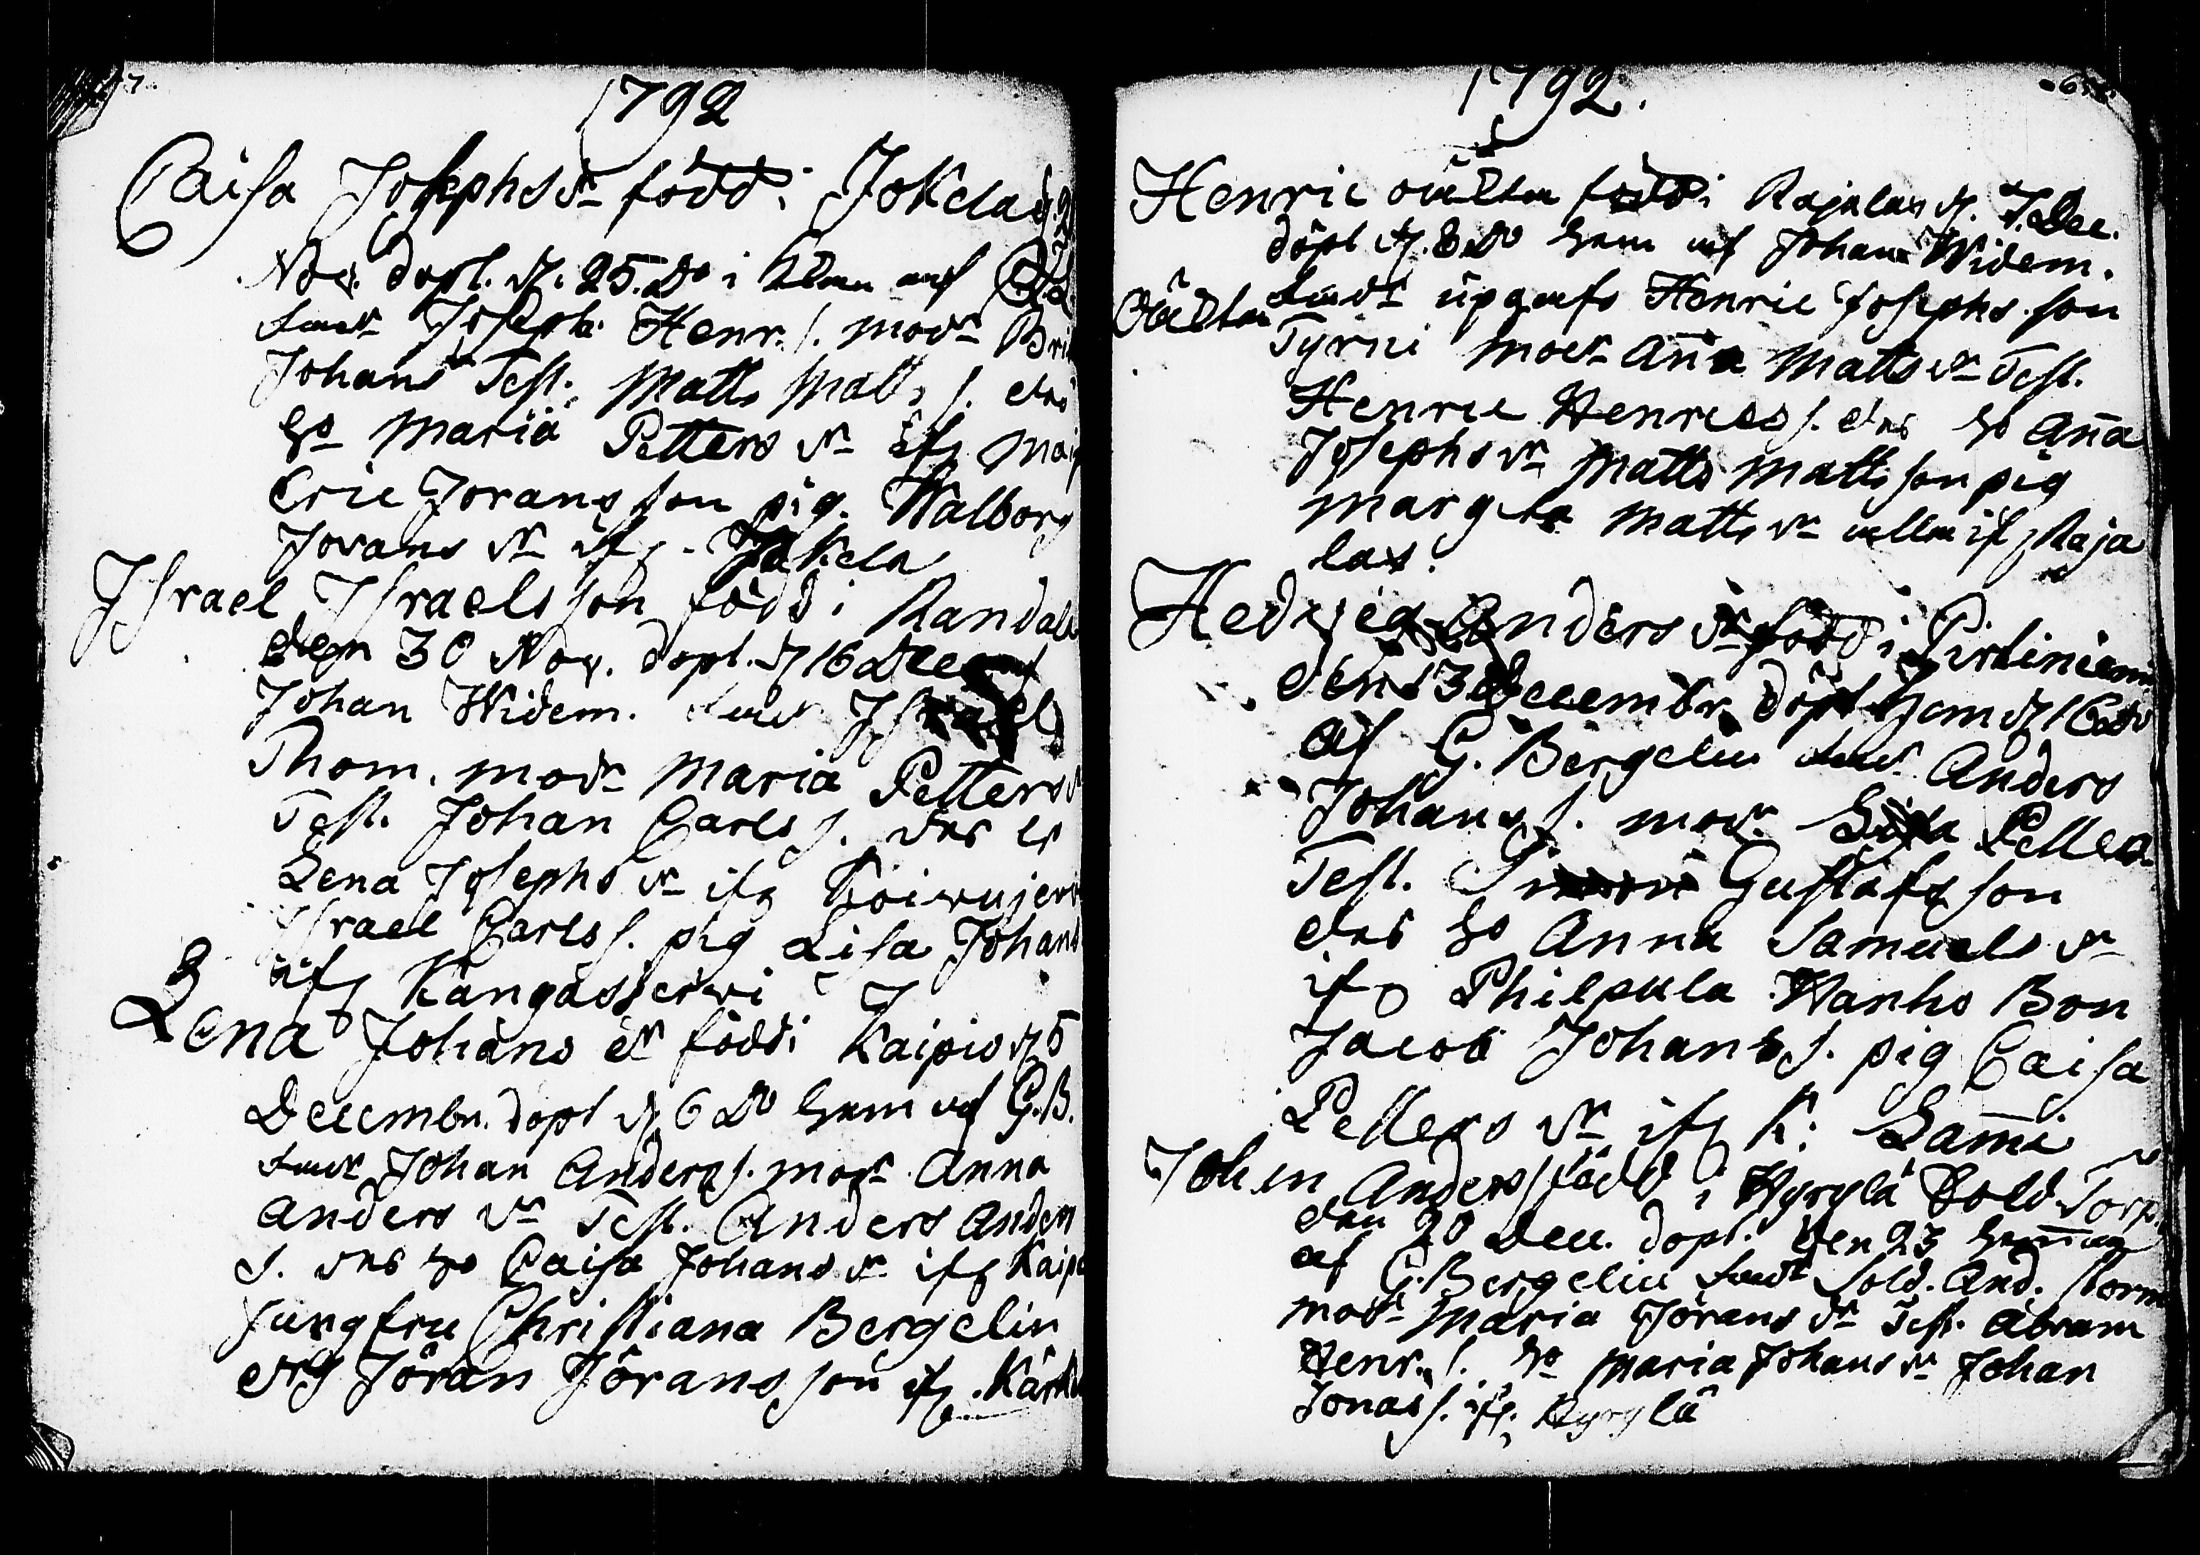 1792
Caisa Josephs dr född i Jokela d.
Nov. döpt. d. 25. do i kÿrkan af
fadr Joseph Henr. s. modr Bri
Johans Test. Matts Matts s. des
ho Maria Petters dr ifr
Eric Jorans son pig. Walborg
Jorans dr ifr. Jokela
Israel Israels son född i Randala
den 30 Nov. döpt. d 16 Dec af
Johan Widem. fadr Israel
Thom. modr Maria Petters d
Test. Johan Carls s. des
Lena Josephs dr ifr Koiwujerw
Israel Carls s. pig Lisa Johans
ifr Kangasjerwi
Lena Johans dr född i Kaipio d 5
Decembr. döpt d 6 do hem af G.B.
fadr Johan Anders s. modr Anna
Anders dr Test. Anders Anders
s. des ho Caisa Johans dr ifr Kaipi
Jungfru Christiana Bergelin
drg Jöran Jörans son ifr. Kärk
1792.
Henric oäckta född i Rajalax d. 7. Dec.
döpt d. 8 do hem af Johan Widem.
Oäckta fadr upgafs Henric Josephs son
Tyrni modr Anna Matts dr Test.
Henric Henrics s. des ho Anna
Josephs dr Matts Matts son pig
Margeta Matts dr alla ifr Raja
lax.
Hedvig Anders dr född i Pirliniemi
den 13 Decembr döpt hem d 16 do
af G. Bergelin fadr Anders
Johans s. modr Petters
Test. Simon Gustafs son
des ho Anna Samuels dr
ifr Philpula Wanho Bon
Jacob Johans s. pig Caisa
Petters dr ifr K: Sammi
Johan Anders s född i Hyrylä Sold Torp.
den 20 Dec. döpt. den 23 hemma
af G. Bergelin fadr Sold. And. Storm
modr Maria Jörans dr Test. Abram
Henr. s. ho Maria Johans dr Johan
Jonas s. ifr. Hyrylä